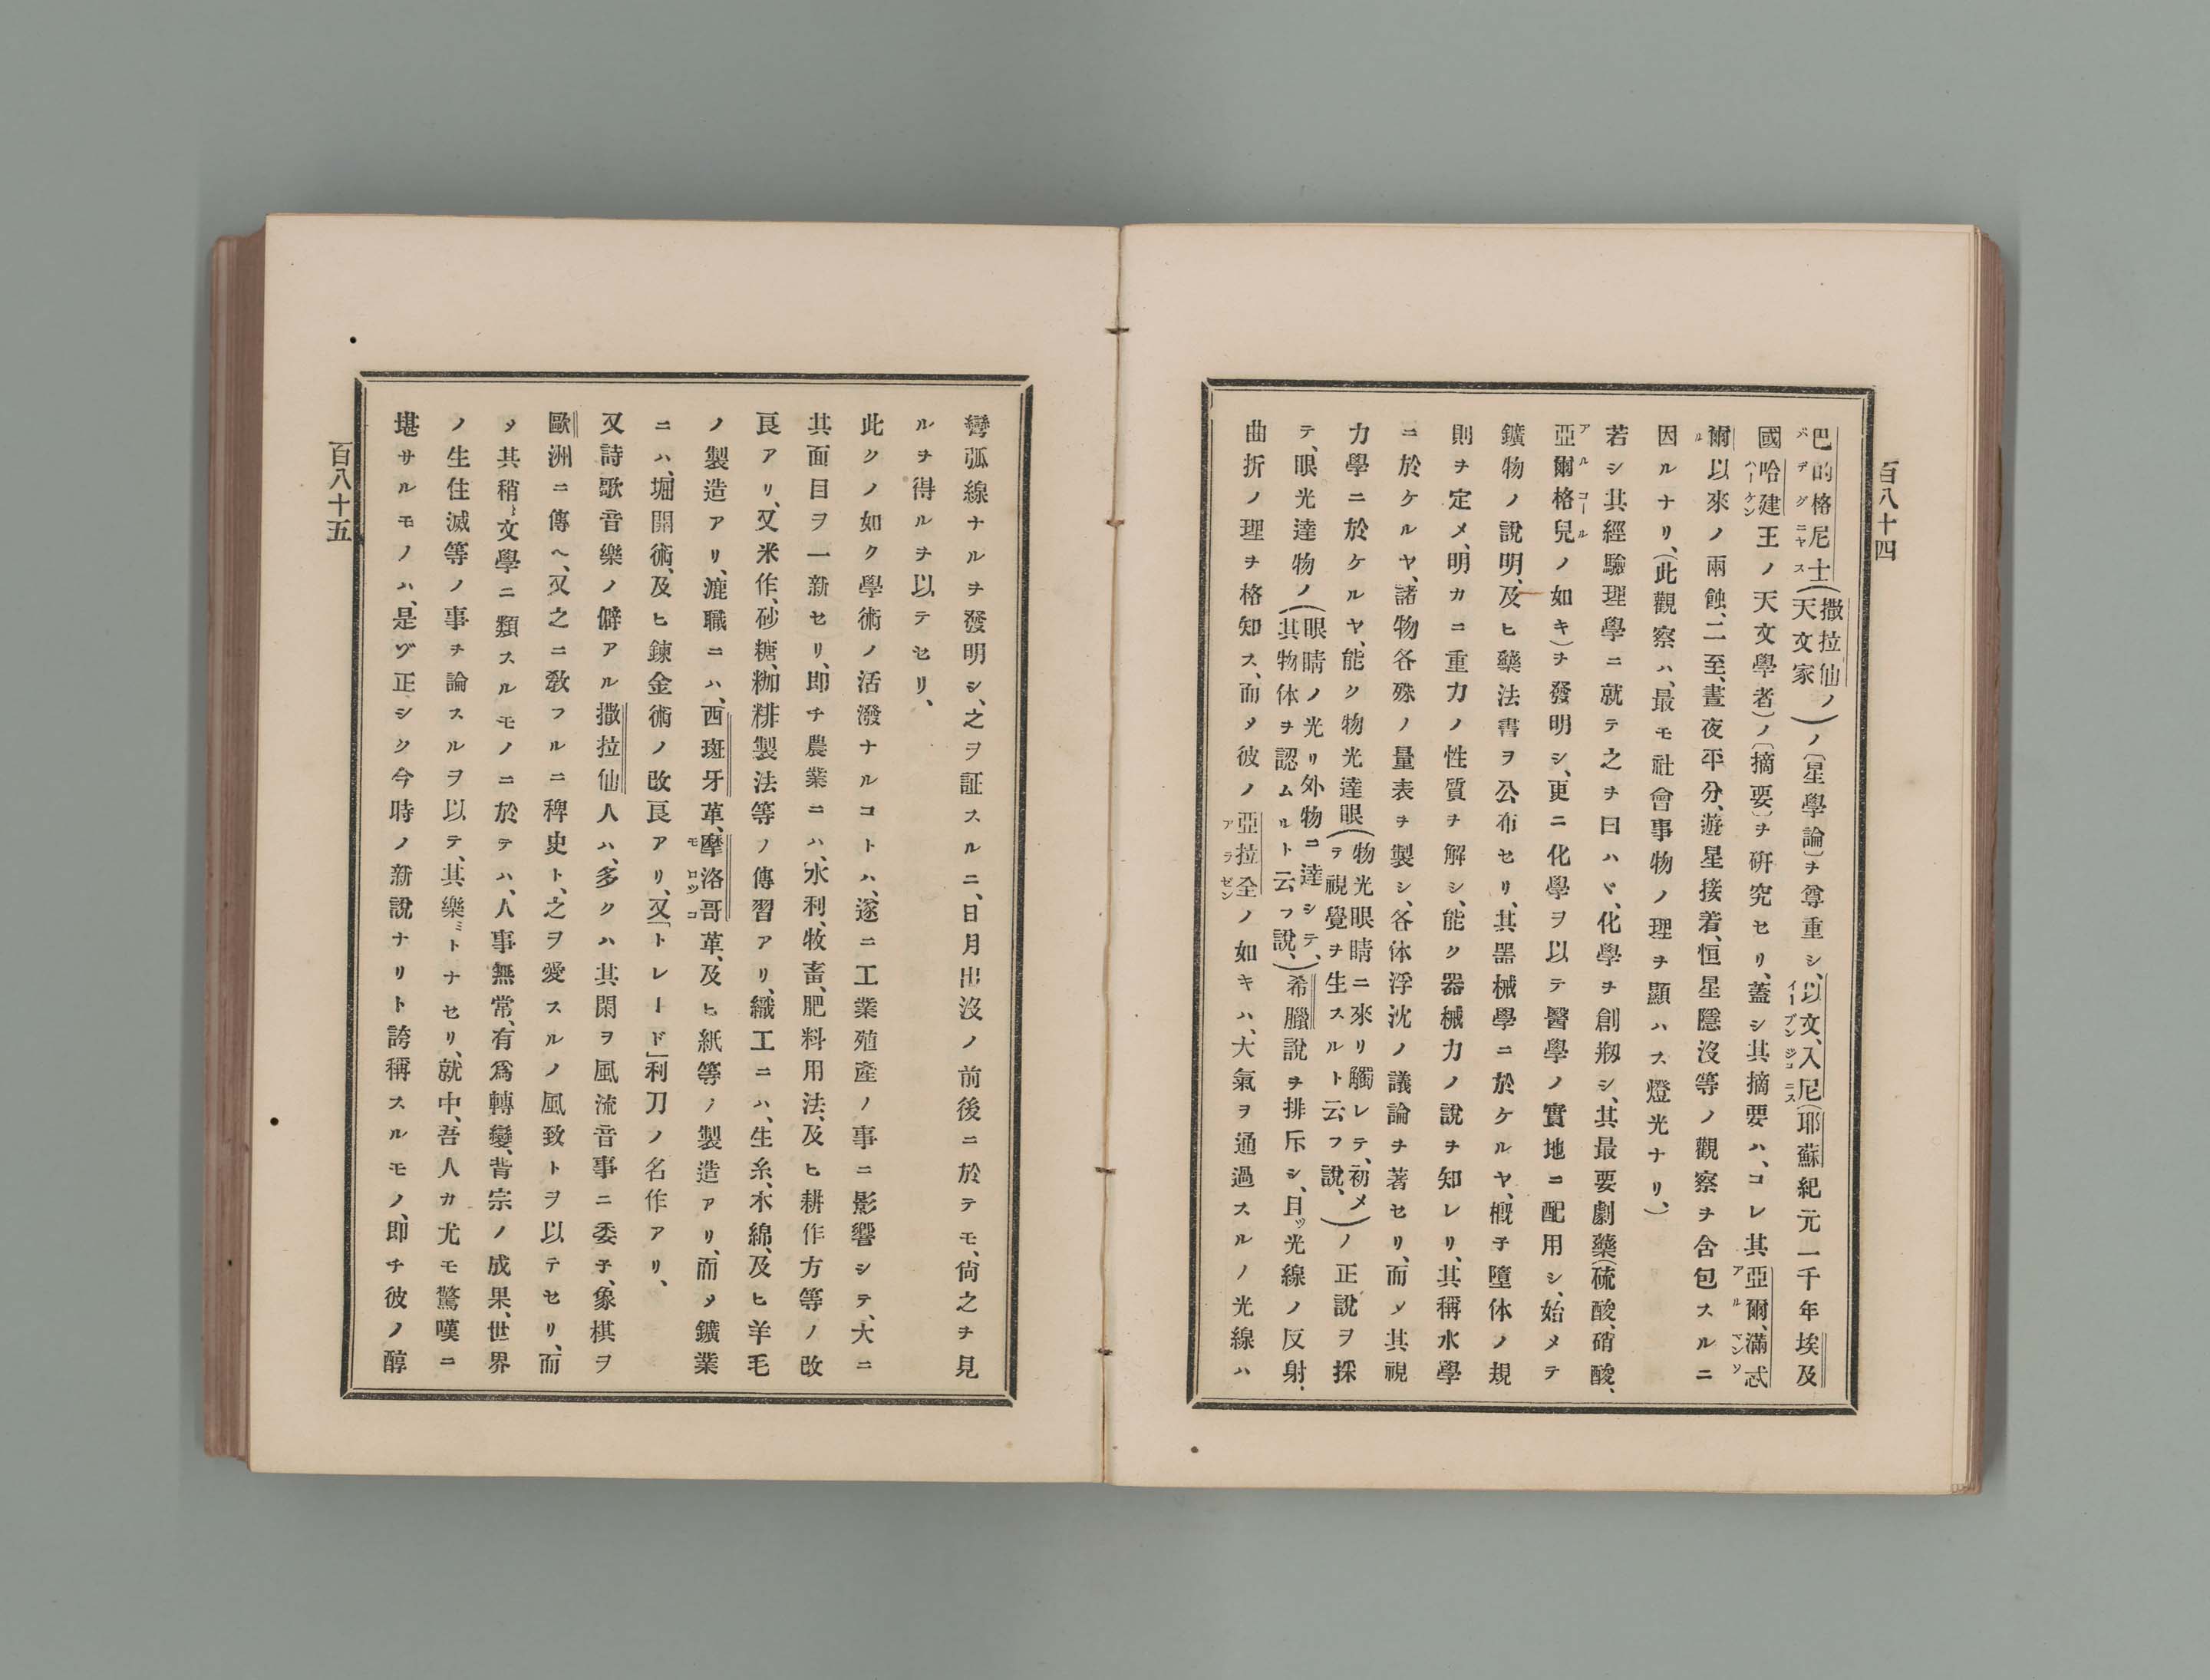 百八十四
巴的格尼士(撒拉仙ノ天文家)ノ〔星學論〕ヲ尊重シ、以文、入尼(耶蘇紀元一千年埃及
國哈建王ノ天文學者)ノ〔摘要〕ヲ研究セリ、蓋シ其摘要ハ、コレ其亞爾、滿忒
爾以來ノ兩蝕、二至、晝夜平分、遊星接着、恒星隱沒等ノ觀察ヲ含包スルニ
因ルナリ、(此觀察ハ、最モ社會事物ノ理ヲ顯ハス燈光ナリ、)
若シ其經驗理學ニ就テ之ヲ曰ハヾ、化學ヲ創剏シ、其最要劇藥(硫酸、硝酸、
亞爾格兒ノ如キ)ヲ發明シ、更ニ化學ヲ以テ醫學ノ實地ニ配用シ、始メテ
鑛物ノ說明、及ヒ藥法書ヲ公布セリ、其器械學ニ於ケルヤ、槪子墮体ノ規
則ヲ定メ、明カニ重力ノ性質ヲ解シ、能ク器械力ノ說ヲ知レリ、其稱水學
ニ於ケルヤ、諸物各殊ノ量表ヲ製シ、各体浮沈ノ議論ヲ著セリ、而ソ其視
力學ニ於ケルヤ、能ク物光達眼(物光眼睛ニ來リ觸レテ、初メテ視覺ヲ生スルト云フ說、)ノ正說ヲ採
テ、眼光達物ノ(眼睛ノ光リ外物ニ達シテ、其物体ヲ認ムルト云フ說、)希臘說ヲ排斥シ、日ッ光線ノ反射、
曲折ノ理ヲ格知ス、而メ彼ノ亞拉全ノ如キハ、大氣ヲ通過スルノ光線ハ
彎弧線ナルヲ發明シ、之ヲ証スルニ、日月出沒ノ前後ニ於テモ、尙之ヲ見
ルヲ得ルヲ以テセリ、
此クノ如ク學術ノ活潑ナルコトハ、遂ニ工業殖產ノ事ニ影響シテ、大ニ
其面目ヲ一新セリ、卽チ農業ニハ、水利、牧畜、肥料用法、及ヒ耕作方等ノ改
良アリ、又米作、砂糖、枷糚製法等ノ傳習アリ、織工ニハ、生糸、木綿、及ヒ羊毛
ノ製造アリ、漉職ニハ、西斑牙革、摩洛哥革、及ヒ紙等ノ製造アリ、而メ鑛業
ニハ、堀開術、及ヒ鍊金術ノ改良アリ、又「トレード」利刀ノ名作アリ、
又詩歌音樂ノ僻アル撒拉仙人ハ、多クハ其閑ヲ風流音事ニ委子、象棋ヲ
歐洲ニ傳ヘ、又之ニ敎フルニ稗史ト、之ヲ愛スルノ風致トヲ以テセリ、而
メ其稍〻文學ニ類スルモノニ於テハ、人事無常、有爲轉變、背宗ノ成果、世界
ノ生住滅等ノ事ヲ論スルヲ以テ、其樂ミトナセリ、就中、吾人カ尤モ驚嘆ニ
堪サルモノハ、是ヅ正シク今時ノ新說ナリト誇稱スルモノ、卽チ彼ノ醇
百八十五